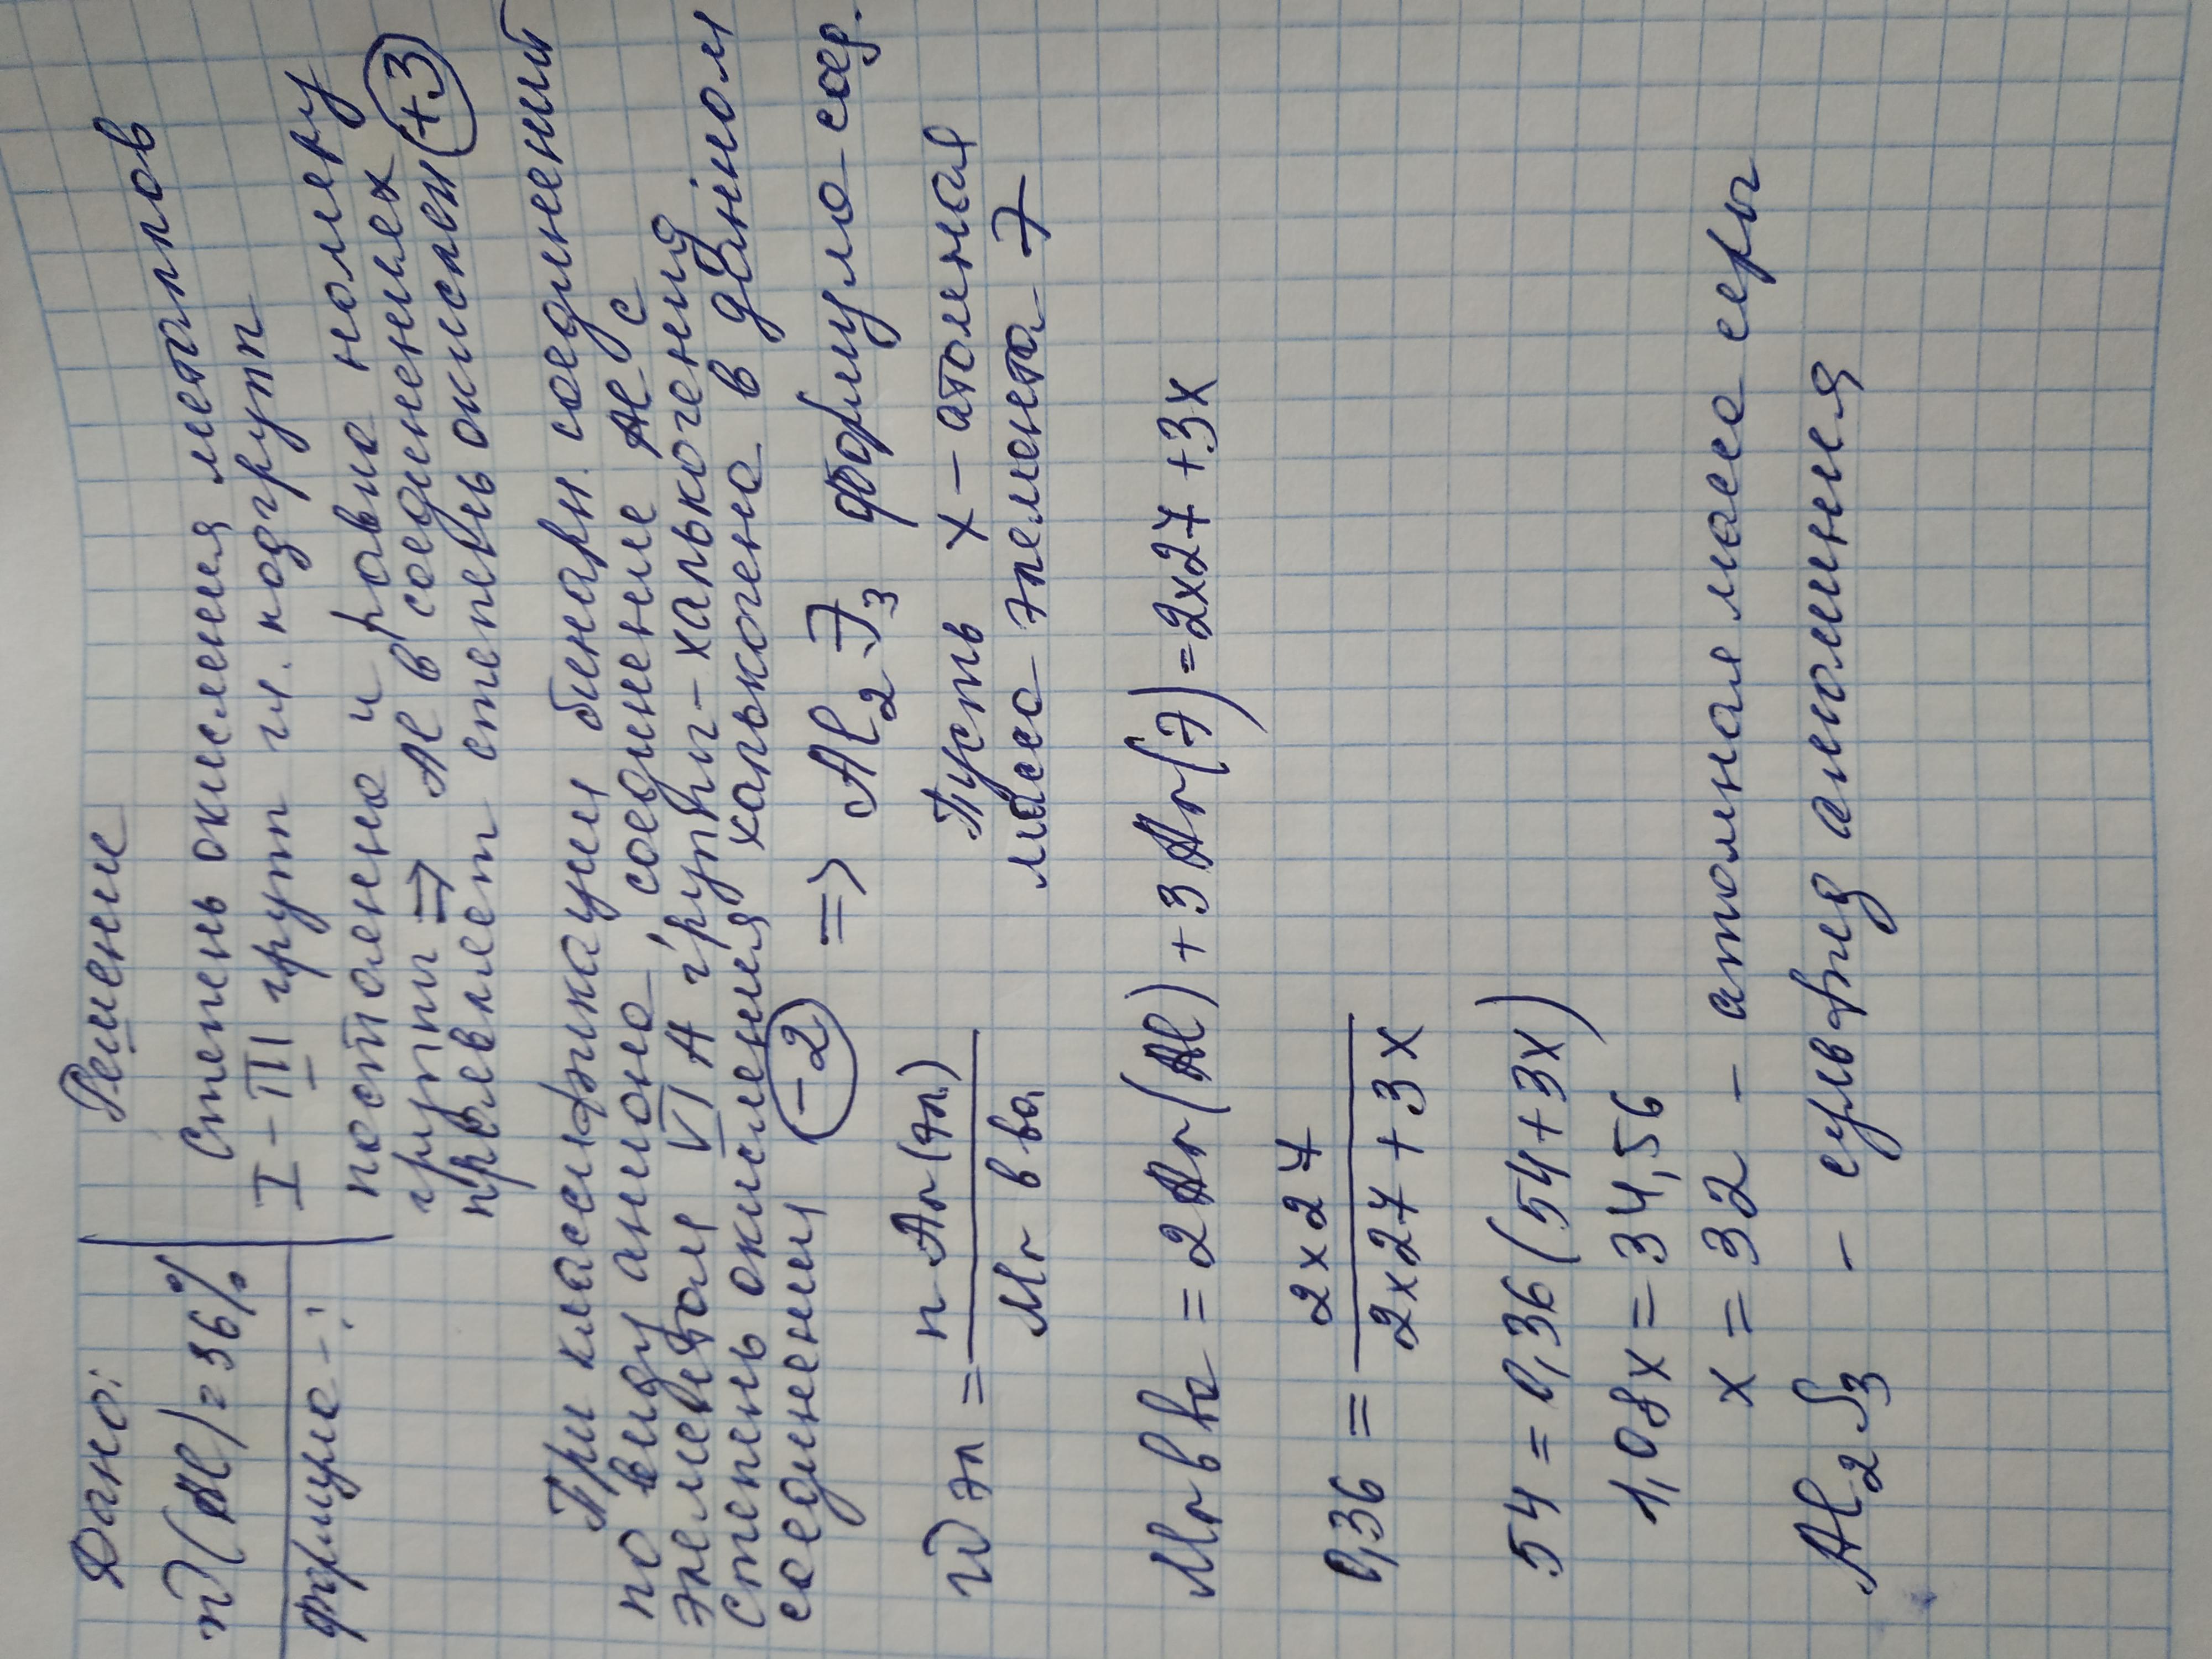 Дано:
Решение
w(Al)=36%
Степень окисления металлов
I-III групп гл. подгрупп
формула-?
постоянна и равна номеру
группы => Al в соединениях
проявляет степень окислен (+3)
При классификации бинарн. соединений
по виду аниона, соединение Al с
элементом VI A группы - халькогения
Степень окисления халькогена в данном
соединении (-2) => Al2Э3 формула соед.
wэл = n Ar(эл) / Mr в ва
Пусть x - атомная
масса элемента Э
Mr в ва = 2Ar(Al) + 3Ar(Э) = 2x27 + 3x
0,36 = 2x27 / 2x27 + 3x
54 = 0,36(54+3x)
1,08x = 34,56
x = 32 - атомная масса серы
Al2S3 - сульфид алюминия